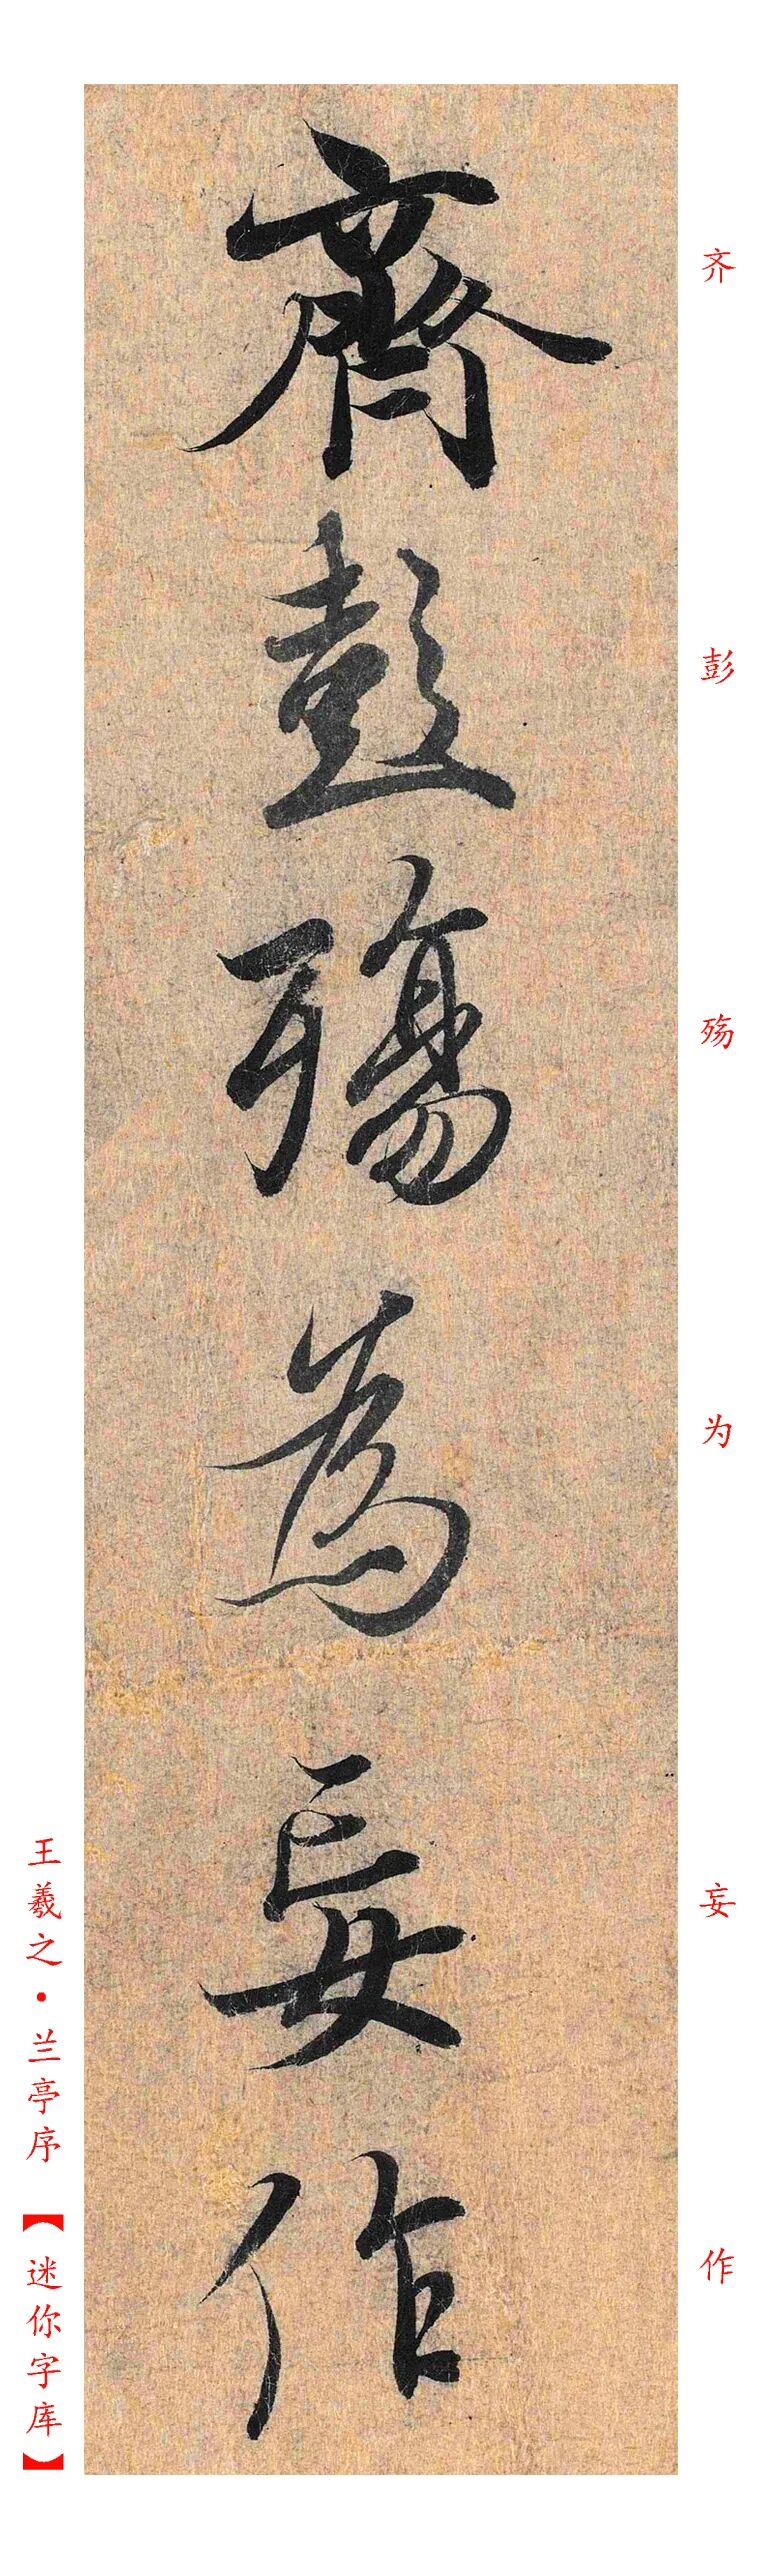 齊彭殤為妄作
齐彭殇为妄作
王羲之·兰亭序【迷你字库】